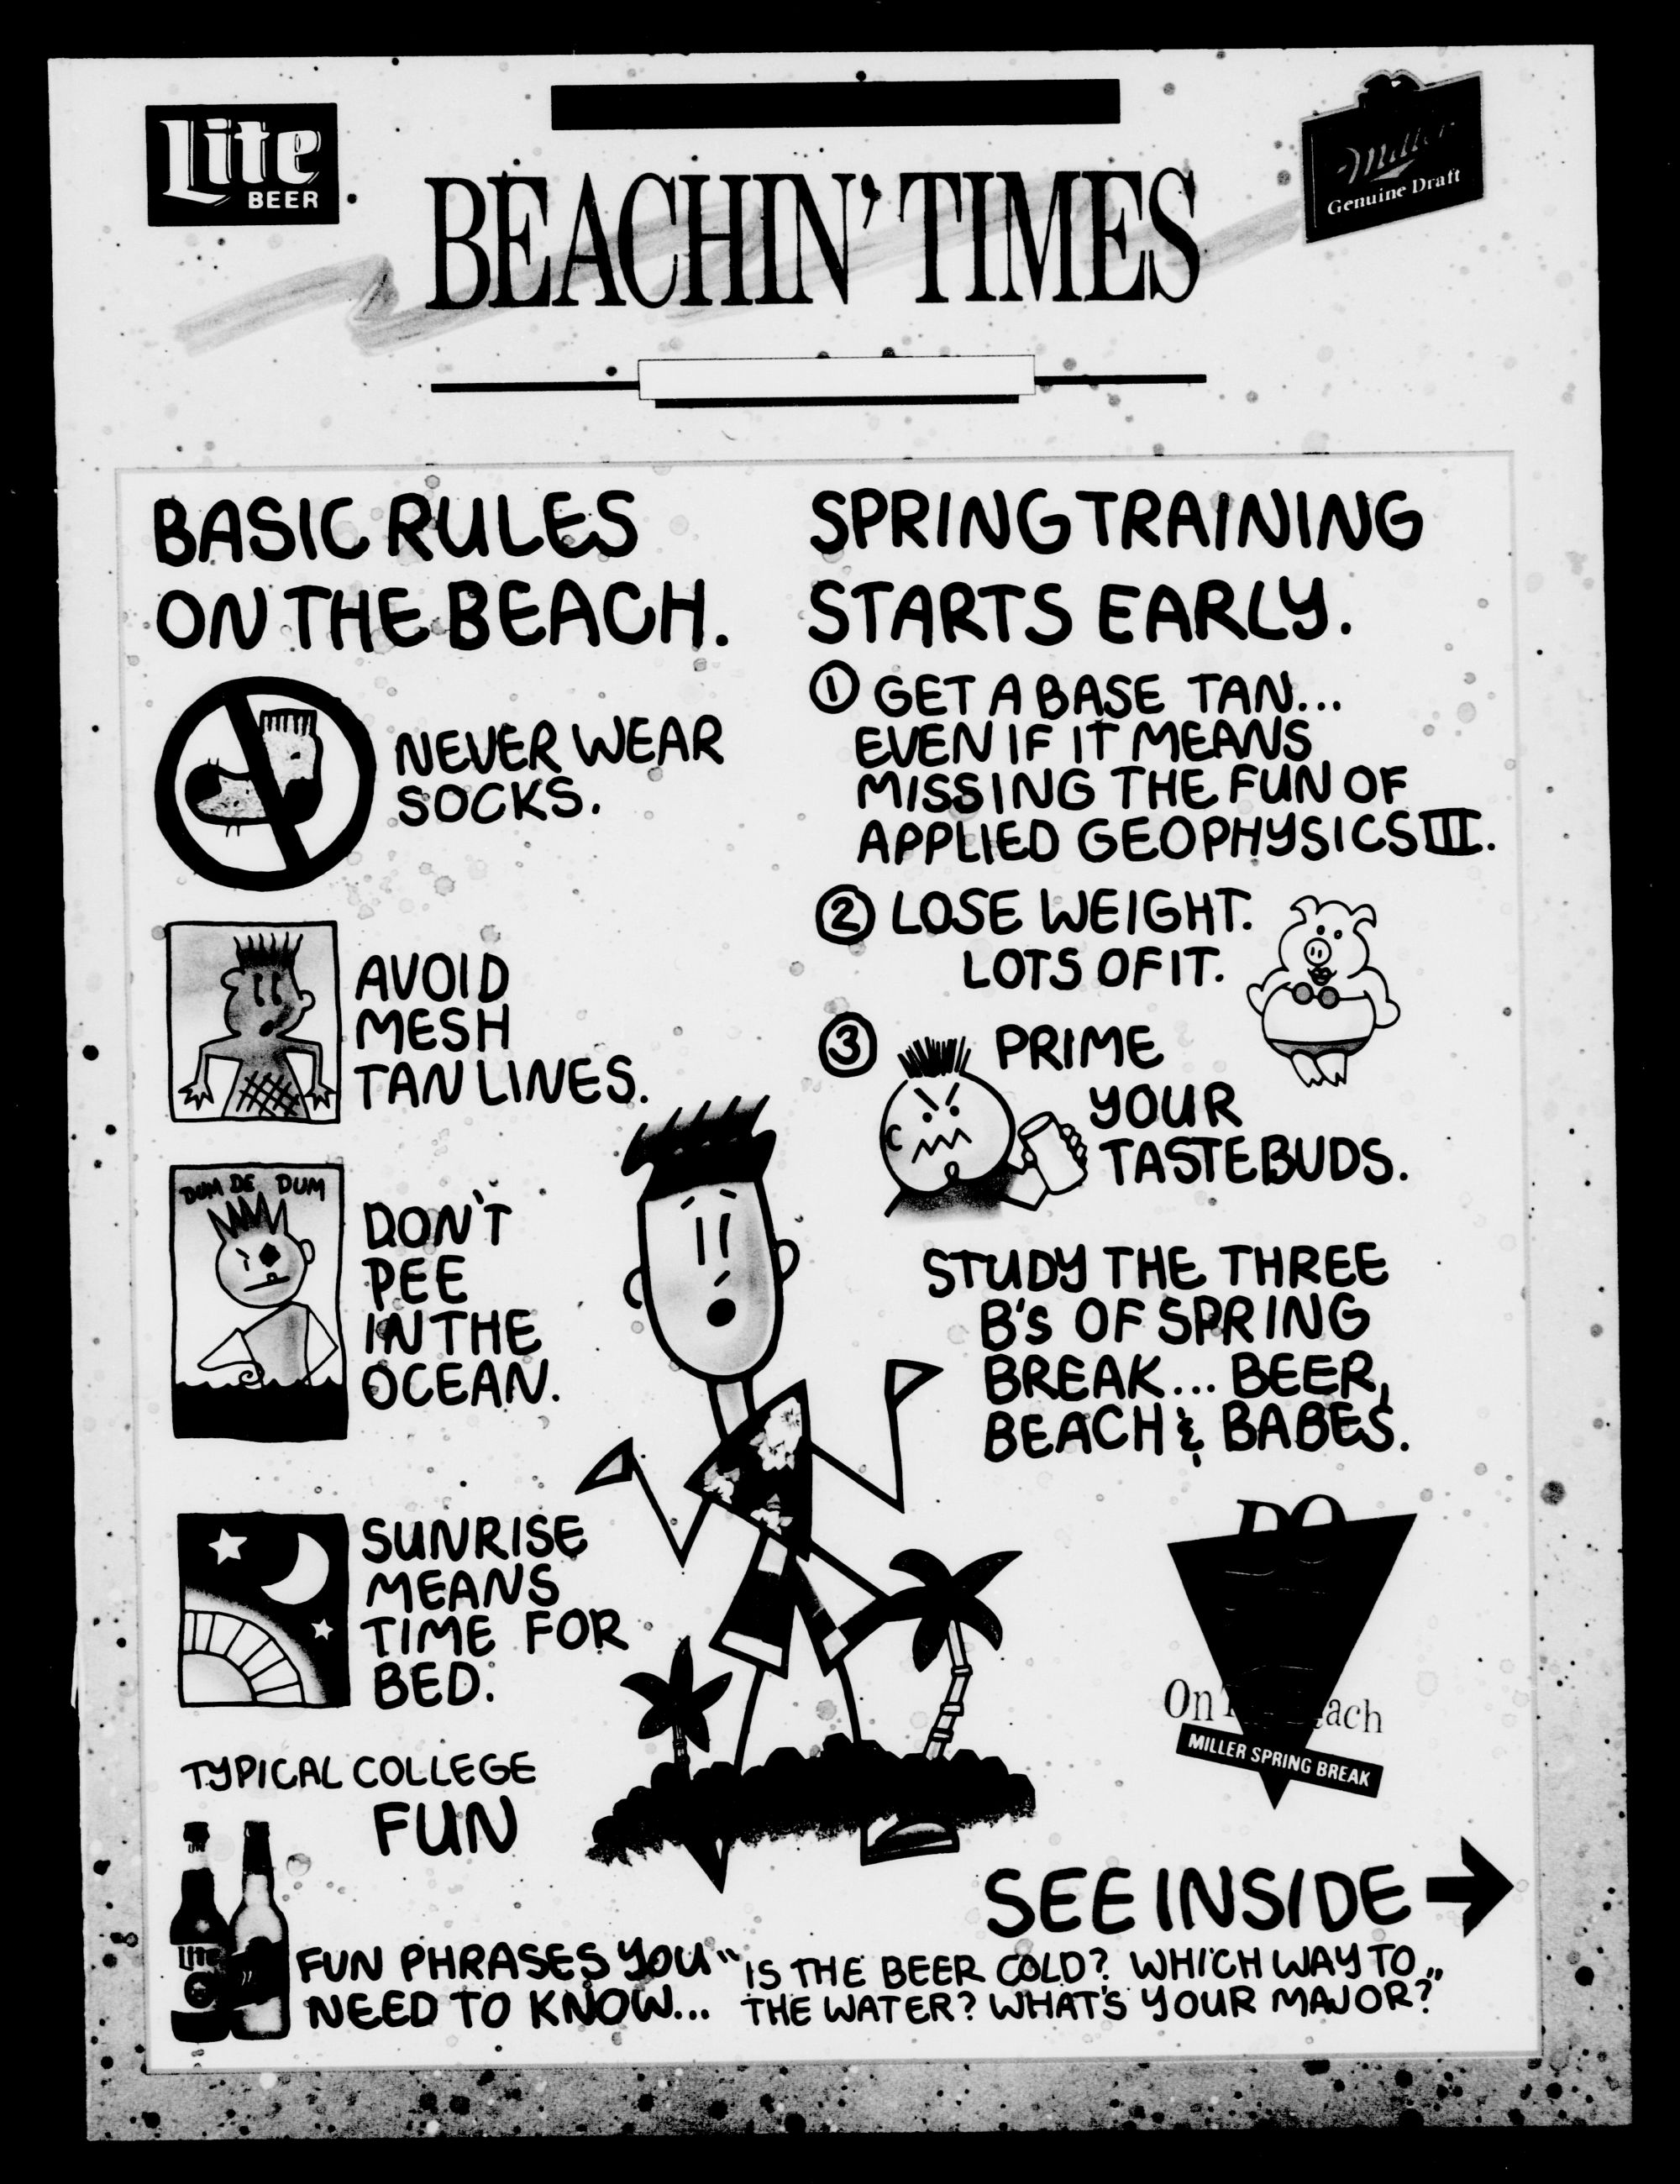 Lite
BEER
Miller
Genuine Draft
BEACHIN' TIMES
BASIC RULES
ON THE BEACH.
NEVER WEAR
SOCKS.
AVOID
MESH
TAN LINES.
DUM DE DUM
DON'T
PEE
IN THE
OCEAN.
SUNRISE
MEANS
TIME FOR
BED.
TYPICAL COLLEGE
FUN
SPRING TRAINING
STARTS EARLY.
1 GET A BASE TAN...
EVEN IF IT MEANS
MISSING THE FUN OF
APPLIED GEOPHYSICS III.
2 LOSE WEIGHT.
LOTS OF IT.
3 PRIME
YOUR
TASTEBUDS.
STUDY THE THREE
B's OF SPRING
BREAK... BEER,
BEACH & BABES.
DO
On
each
MILLER SPRING BREAK
SEE INSIDE →
Lite
FUN PHRASES YOU
NEED TO KNOW...
"IS THE BEER COLD? WHICH WAY TO
THE WATER? WHAT'S YOUR MAJOR?"